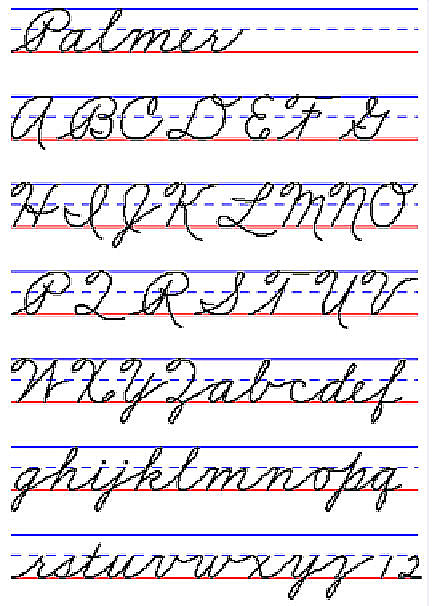 Palmer
ABCDEFG
HIJKLMNO
PQRSTUV
WXYZabcdef
ghijklmnopq
rstuvwxyz 12